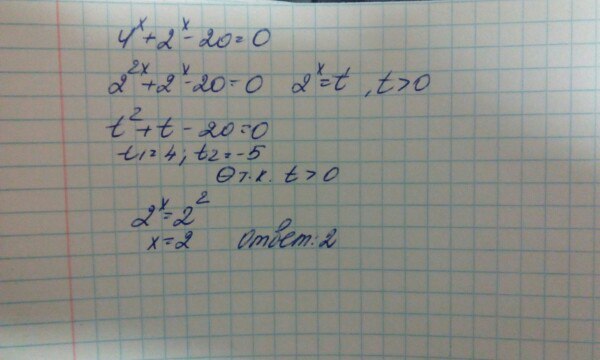 4^x + 2^x - 20 = 0
2^{2x} + 2^x - 20 = 0   2^x = t , t > 0
t^2 + t - 20 = 0
t_1 = 4 ; t_2 = -5
∅ т.к. t > 0
2^x = 2^2
x = 2   Ответ: 2